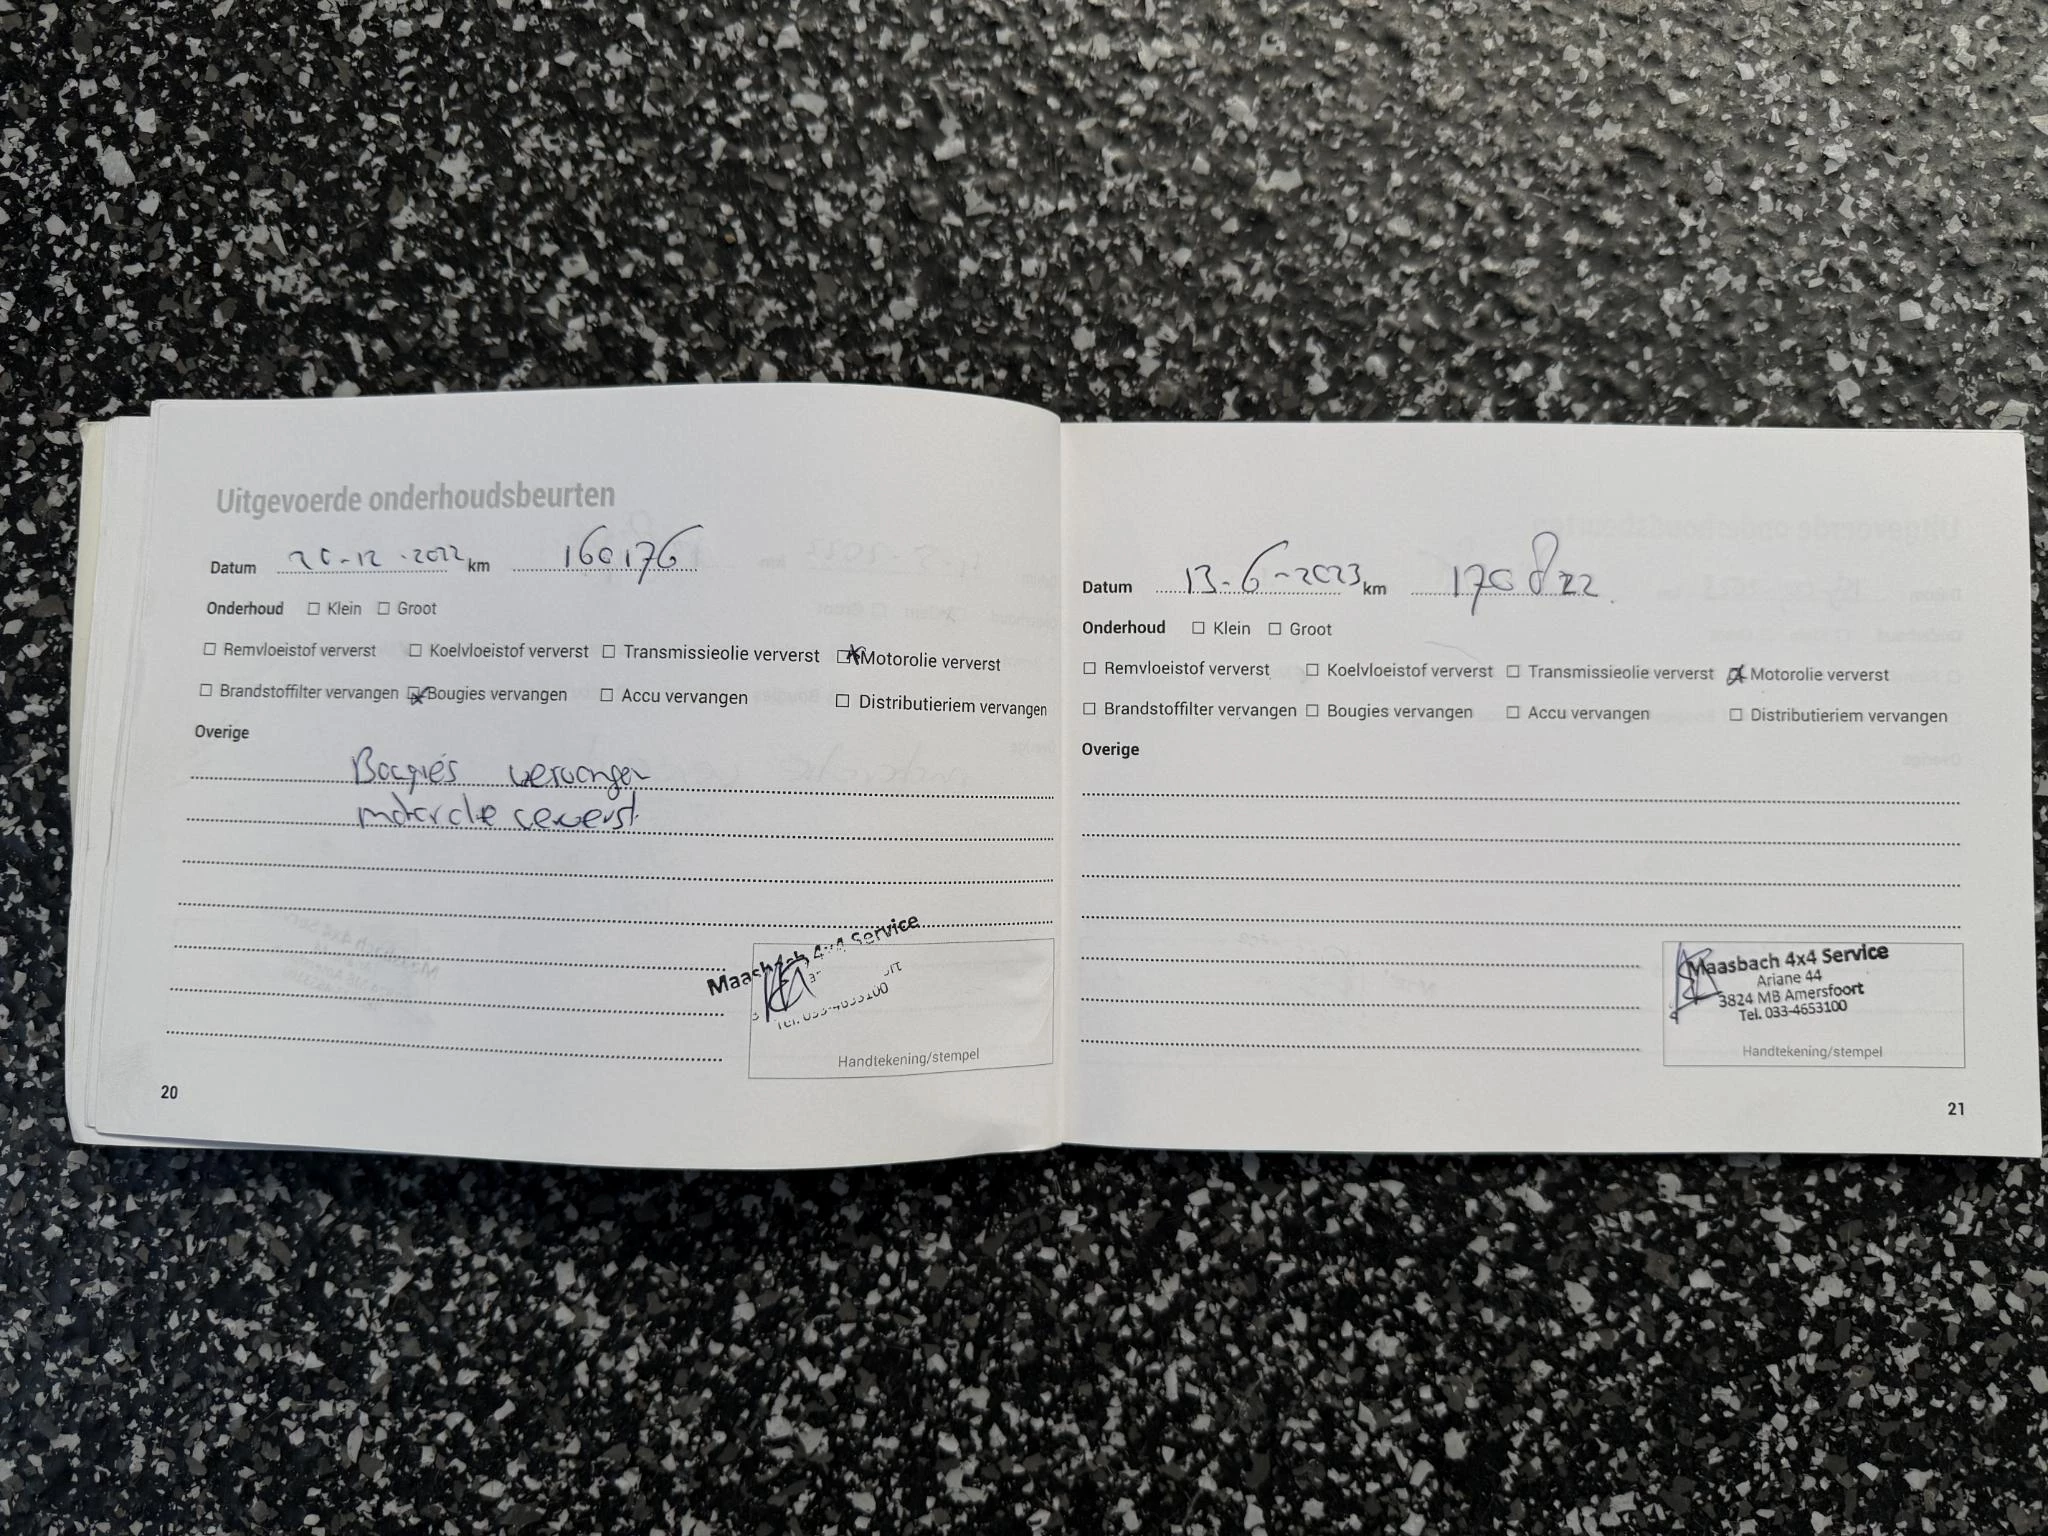 Uitgevoerde onderhoudsbeurten
Datum 20-12-2022 km 160176
Onderhoud ☐ Klein ☐ Groot
☐ Remvloeistof ververst ☐ Koelvloeistof ververst ☐ Transmissieolie ververst ☒ Motorolie ververst
☐ Brandstoffilter vervangen ☒ Bougies vervangen ☐ Accu vervangen ☐ Distributieriem vervangen
Overige
Bougies vervangen
motorolie ververst
Maasbach 4x4 Service
Tel. 033-4653100
Handtekening/stempel
20
Datum 13-6-2023 km 170822
Onderhoud ☐ Klein ☐ Groot
☐ Remvloeistof ververst ☐ Koelvloeistof ververst ☐ Transmissieolie ververst ☒ Motorolie ververst
☐ Brandstoffilter vervangen ☐ Bougies vervangen ☐ Accu vervangen ☐ Distributieriem vervangen
Overige
Maasbach 4x4 Service
Ariane 44
3824 MB Amersfoort
Tel. 033-4653100
Handtekening/stempel
21